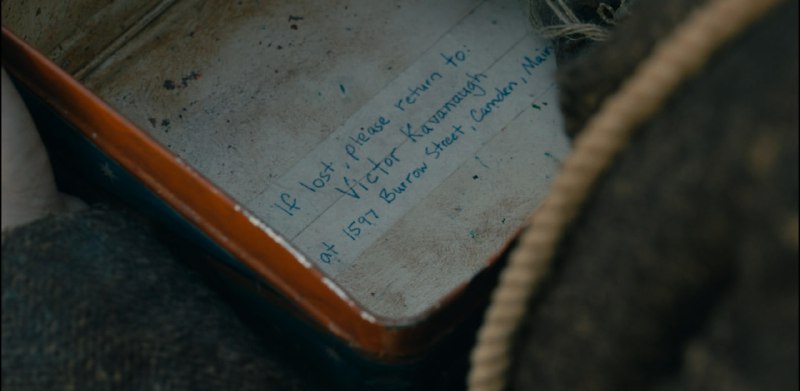 If lost, please return to:
Victor Kavanaugh
at 1597 Burrow Street, Camden,